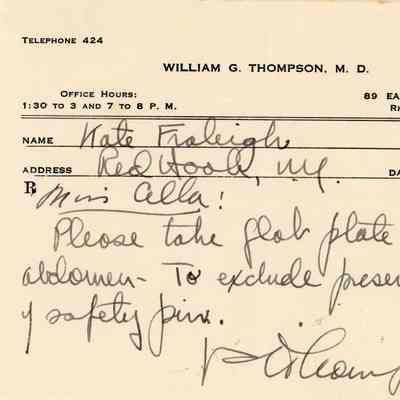 TELEPHONE 424
WILLIAM G. THOMPSON, M. D.
OFFICE HOURS:
1:30 TO 3 AND 7 TO 8 P. M.
89 EA
NAME Kate Fraleigh
ADDRESS Red Hook, N.Y. DA
℞ Miss Cella!
Please take flat plate
abdomen - To exclude presen
of safety pin.